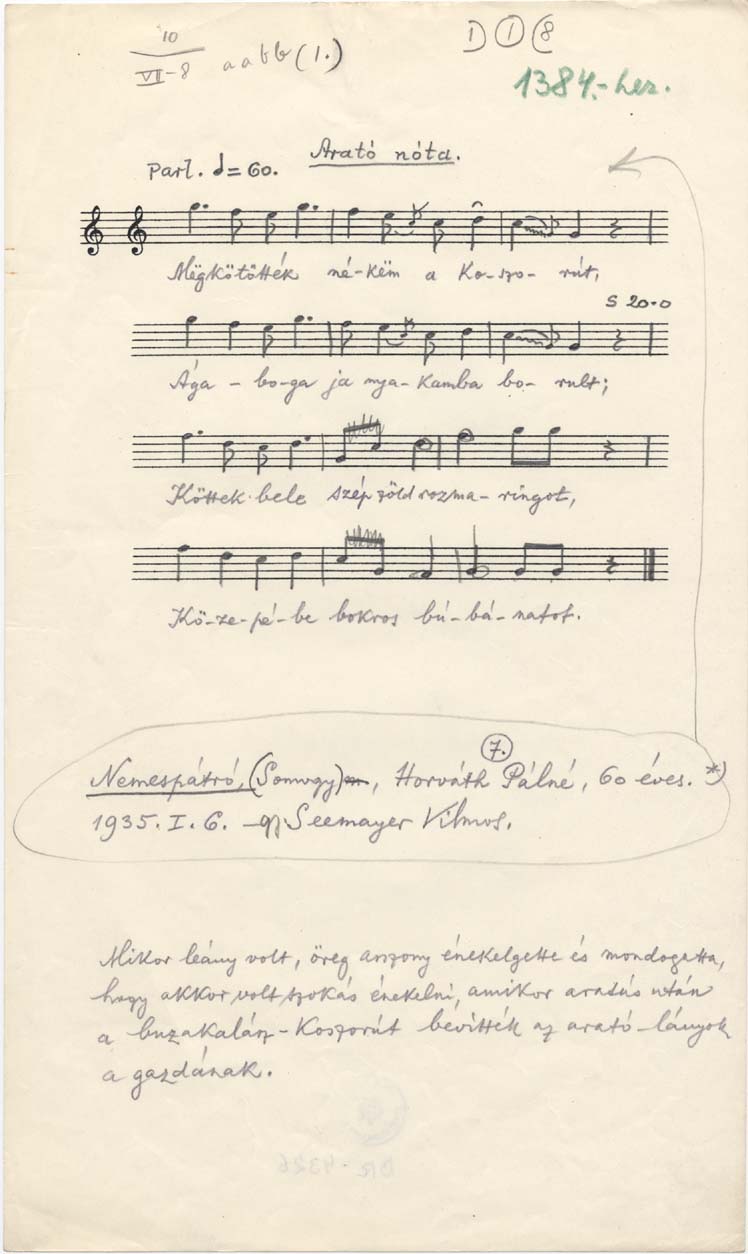 10
VII-8 aabb (1.)
D 1 8
1384.-hez.
Arató nóta.
Parl. = 60.
Mëgkötötték né-këm a Ko-szo-rút,
S 20.0
Ága-bo-ga ja nya-kamba bo-rult;
Köttek bele szép zöld rozma-ringot,
Kö-ze-pé-be bokros bú-bá-natot.
7.
Nemespátró, (Somogy), Horváth Pálné, 60 éves. *)
1935. I. 6. Seemayer Vilmos.
Mikor leány volt, öreg asszony énekelgette és mondogatta,
hogy akkor volt szokás énekelni, amikor aratás után
a buzakalász-koszorút bevitték az arató-lányok
a gazdának.